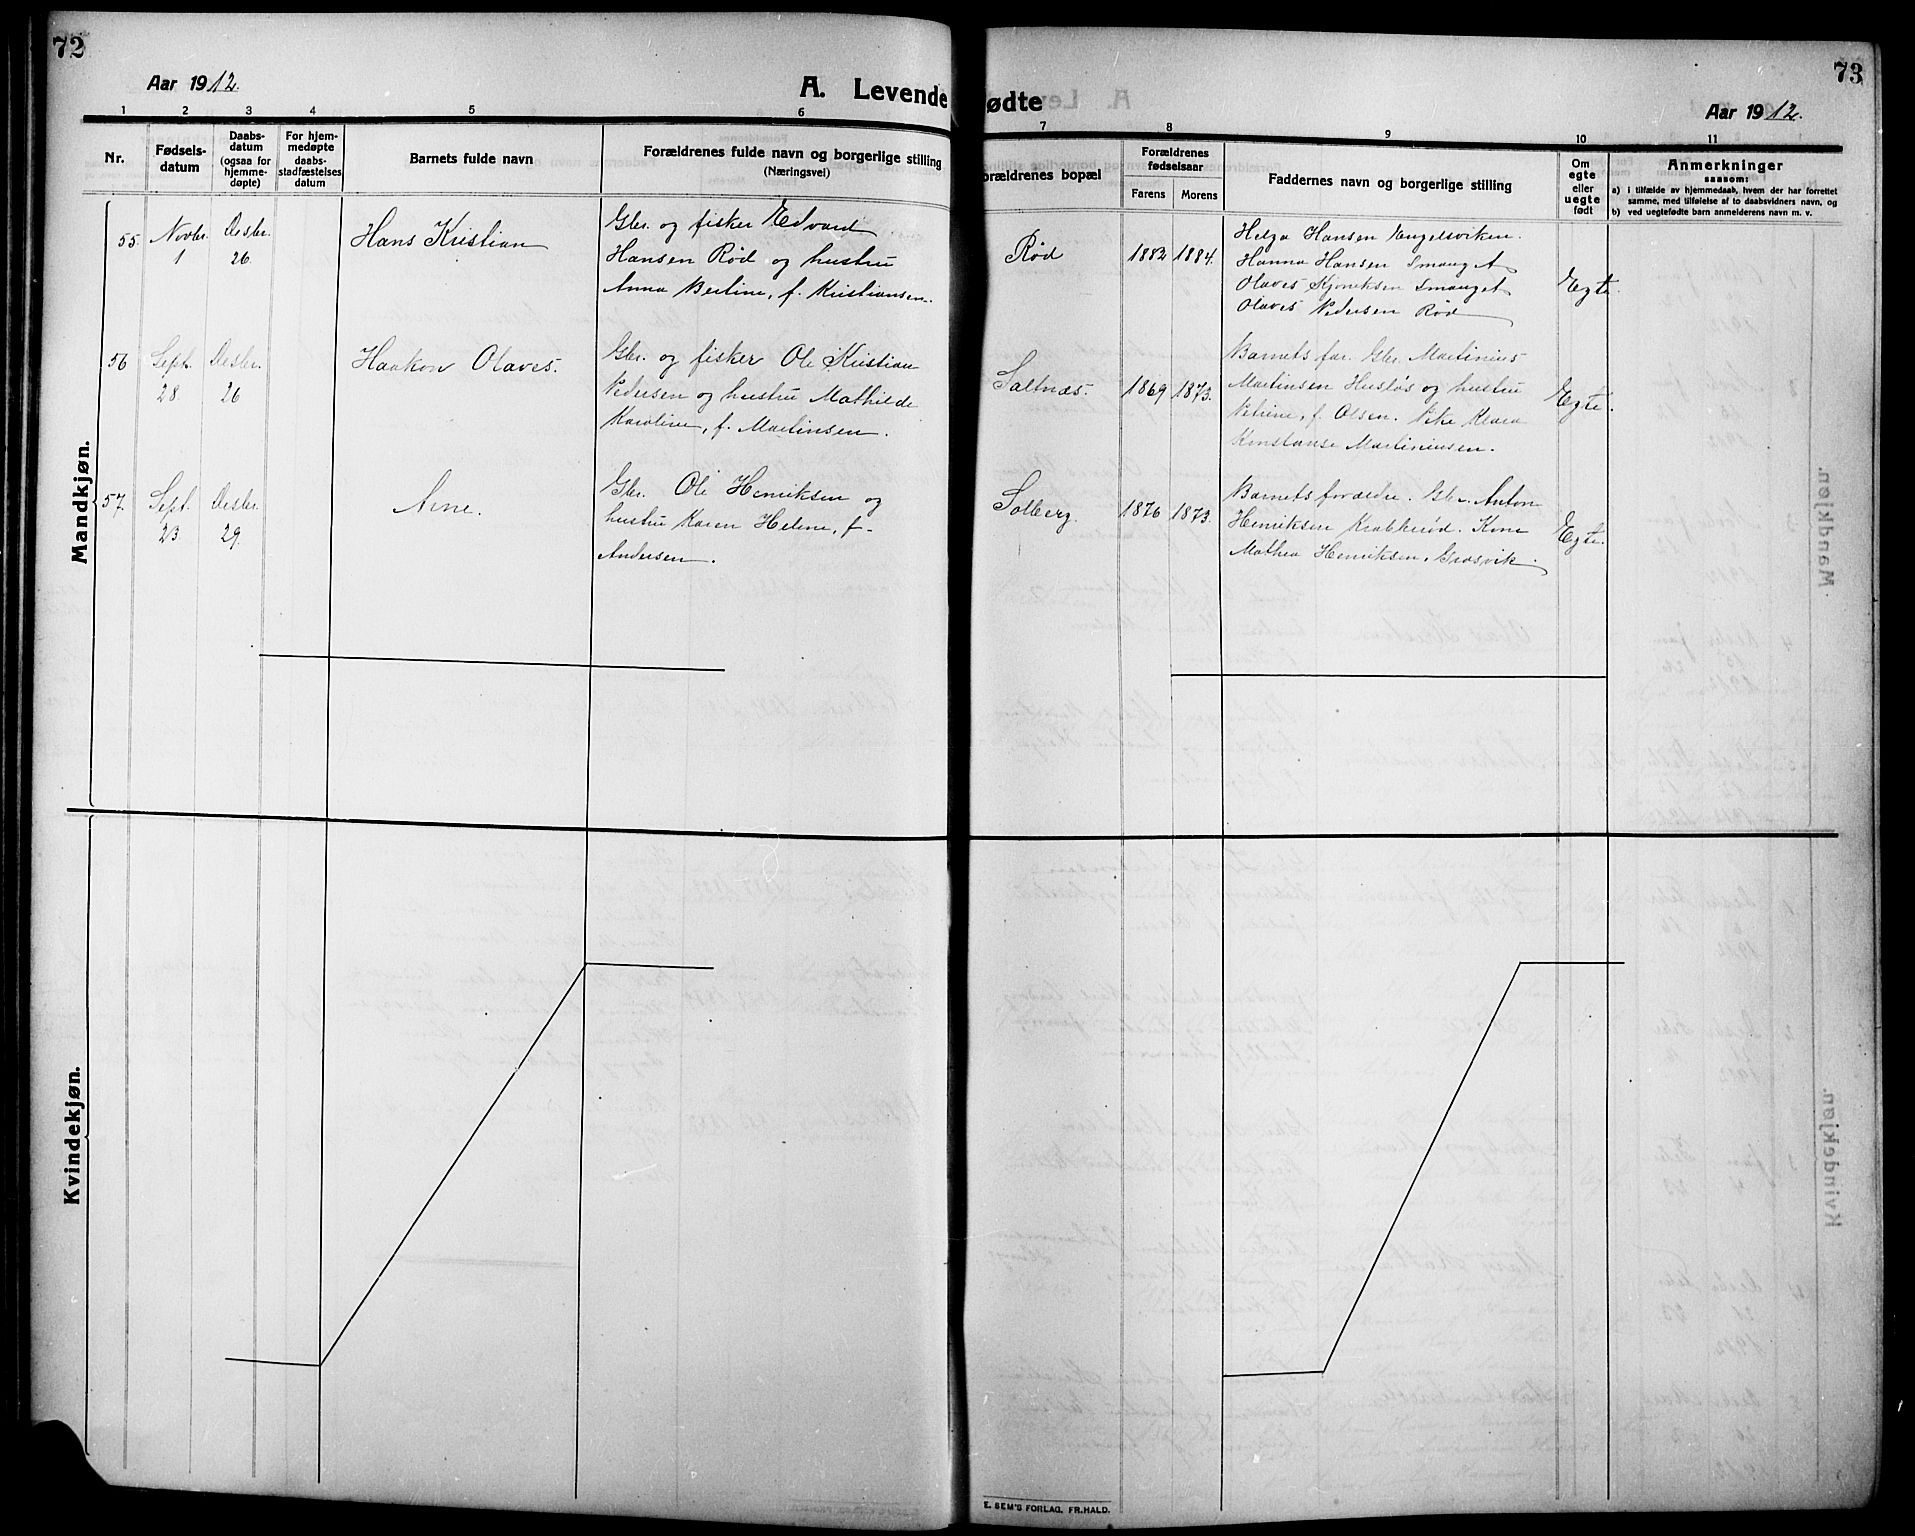 72
Aar 1912.
A. Levende
1 2 3 4 5 6
Nr.
Fødsels-
datum
Daabs-
datum
(ogsaa for
hjemme-
døpte)
For hjem-
medøpte
daabs-
stadfæstelses
datum
Barnets fulde navn
Forældrenes fulde navn og borgerlige stilling
(Næringsvei)
Mandkjøn.
55. Novbr. 1 Desbr. 26.
Hans Kristian
Gbr. og fisker Edvard
Hansen Rød og hustru
Anna Bertine, f. Kristiansen.
56 Sept. 28 Desbr. 26
Haakon Olaves.
Gbr. og fisker Ole Kristian
Pedersen og hustru Mathilde
Karoline, f. Martinsen.
57. Sept. 23 Desbr. 29.
Arne.
Gbr. Ole Henriksen og
hustru Karen Helene, f.
Andersen.
Kvindekjøn.
73
ødte
Aar 1912.
7 8 9 10 11
orældrenes bopæl
Forældrenes
fødselsaar
Farens Morens
Faddernes navn og borgerlige stilling
Om
egte
eller
uegte
født
Anmerkninger
saasom:
a) i tilfælde av hjemmedaab, hvem der har forrettet
samme, med tilføielse af to daabsvidners navn, og
b) ved uegtefødte barn anmelderens navn m. v.
Rød 1882 1884.
Helga Hansen Engelsviken.
Hanna Hansen Smauget
Olaves Smauget
Olaves Pedersen Rød
Egte.
Saltnæs. 1869 1873.
Barnets far. Gbr. Martinius
Martinsen Husløs og hustru
Petrine, f. Olsen. Pike Klara
Konstanse Martiniussen.
Egte.
Solberg. 1876 1873.
Barnets forældre. Gbr. Anton
Henriksen Krabberød. Kone
Mathea Henriksen, Græsvik.
Egte.
E. SEM'S FORLAG, FR.HALD.